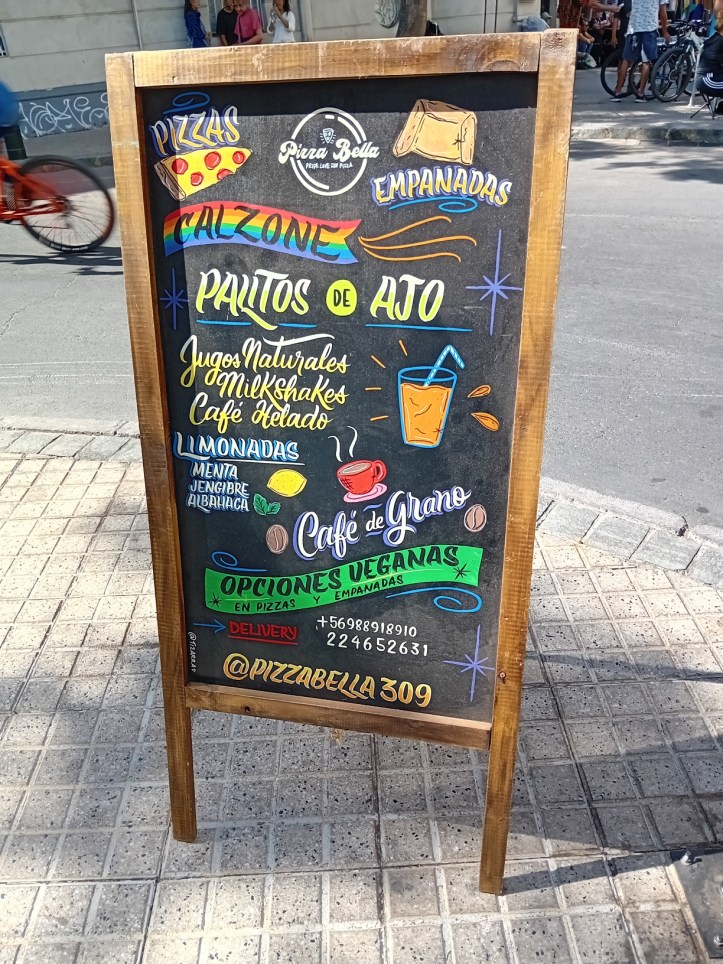 PIZZAS
Pizza Bella
EMPANADAS
CALZONE
PALITOS DE AJO
Jugos Naturales
Milkshakes
Café Helado
LIMONADAS
MENTA
JENGIBRE
ALBAHACA
Café de Grano
OPCIONES VEGANAS
EN PIZZAS Y EMPANADAS
DELIVERY
+56988918910
224652631
@PIZZABELLA309